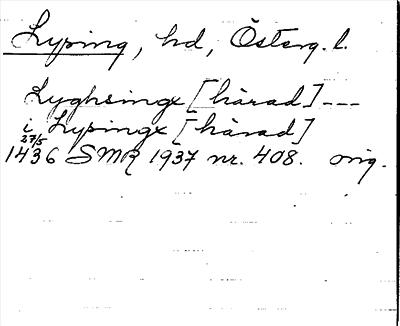 Lysing, hd, Österg. l.
Lyghsingx [härad] ---
i Lysingx [härad]
27/5
1436 SMR 1937 nr. 408. orig.